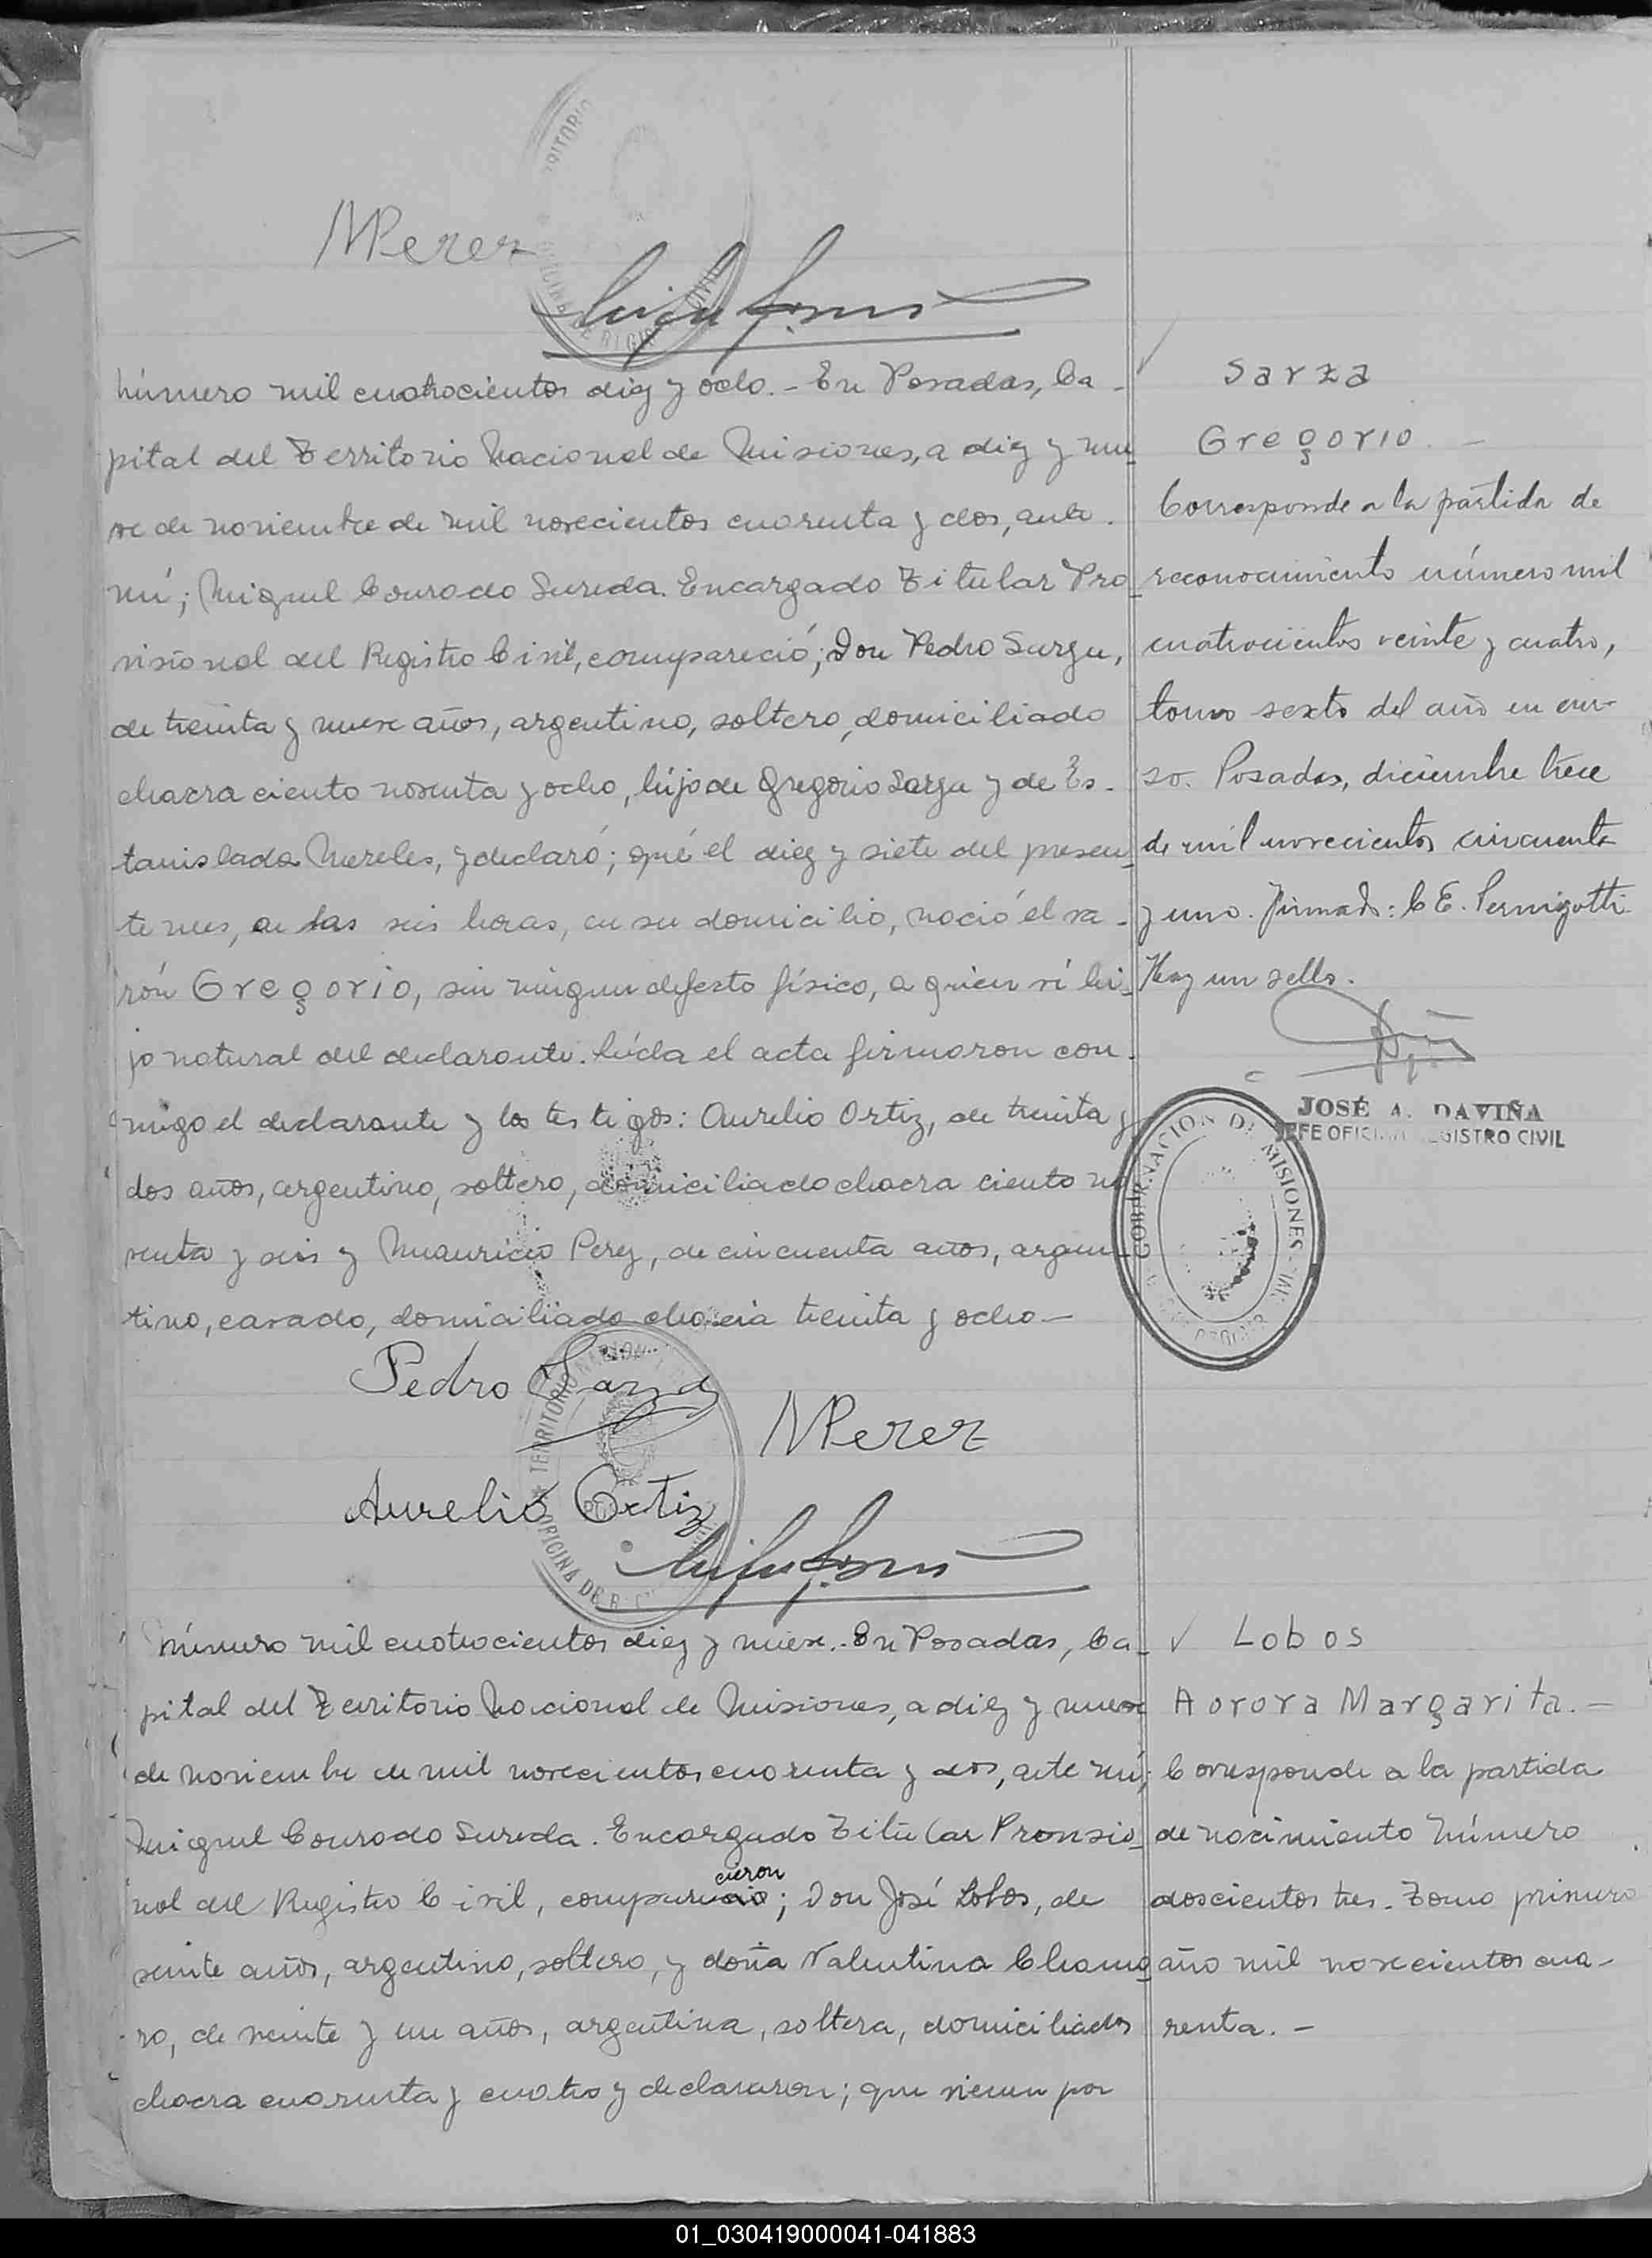 MPerez
Número mil cuatrocientos diez y ocho.- En Posadas, Ca-
pital del Territorio Nacional de Misiones, a diez y nue-
ve de noviembre de mil novecientos cuarenta y dos, ante
mí; Miguel Conrado Sureda. Encargado Titular Pro-
visional del Registro Civil, compareció; Don Pedro Sarza,
de treinta y nueve años, argentino, soltero, domiciliado
chacra ciento noventa y ocho, hijo de Gregorio Sarza y de Es-
tanislada Mereles, y declaró; que el diez y siete del presen-
te mes, a las seis horas, en su domicilio, nació el va-
rón Gregorio, sin ningun defecto físico, a quien vi hi-
jo natural del declarante. Leída el acta firmaron con-
migo el declarante y los testigos: Aurelio Ortiz, de treinta y
dos años, argentino, soltero, domiciliado chacra ciento no
venta y seis y Mauricio Perez, de cincuenta años, argen-
tino, casado, domiciliado chacra treinta y ocho—
Pedro Sarza
MPerez
Aurelio Ortiz
TERRITORIO NACIONAL
OFICINA DE R
Sarza
Gregorio. —
Corresponde a la partida de
reconocimiento número mil
cuatrocientos veinte y cuatro,
tomo sexto del año en cur-
so. Posadas, diciembre trece
de mil novecientos cincuenta
y uno. Firmado: C E. Pernigotti
Hay un sello.
JOSÉ A. DAVIÑA
JEFE OFICINA REGISTRO CIVIL
GOBERNACION DE MISIONES
Número mil cuatrocientos diez y nueve.- En Posadas, Ca-
pital del Territorio Nacional de Misiones, a diez y nueve
de noviembre de mil novecientos cuarenta y dos, ante mí;
Miguel Conrado Sureda. Encargado Titular Provisio-
nal del Registro Civil, comparecieron; Don José Lobos, de
veinte años, argentino, soltero, y doña Valentina Chamo-
ro, de veinte y un años, argentina, soltera, domiciliados
chacra cuarenta y cuatro y declararon; que vienen por
Lobos
Aorora Margarita. —
Corresponde a la partida
de nacimiento Número
doscientos tres. Tomo primero
año mil novecientos cua-
renta. —
01_030419000041-041883